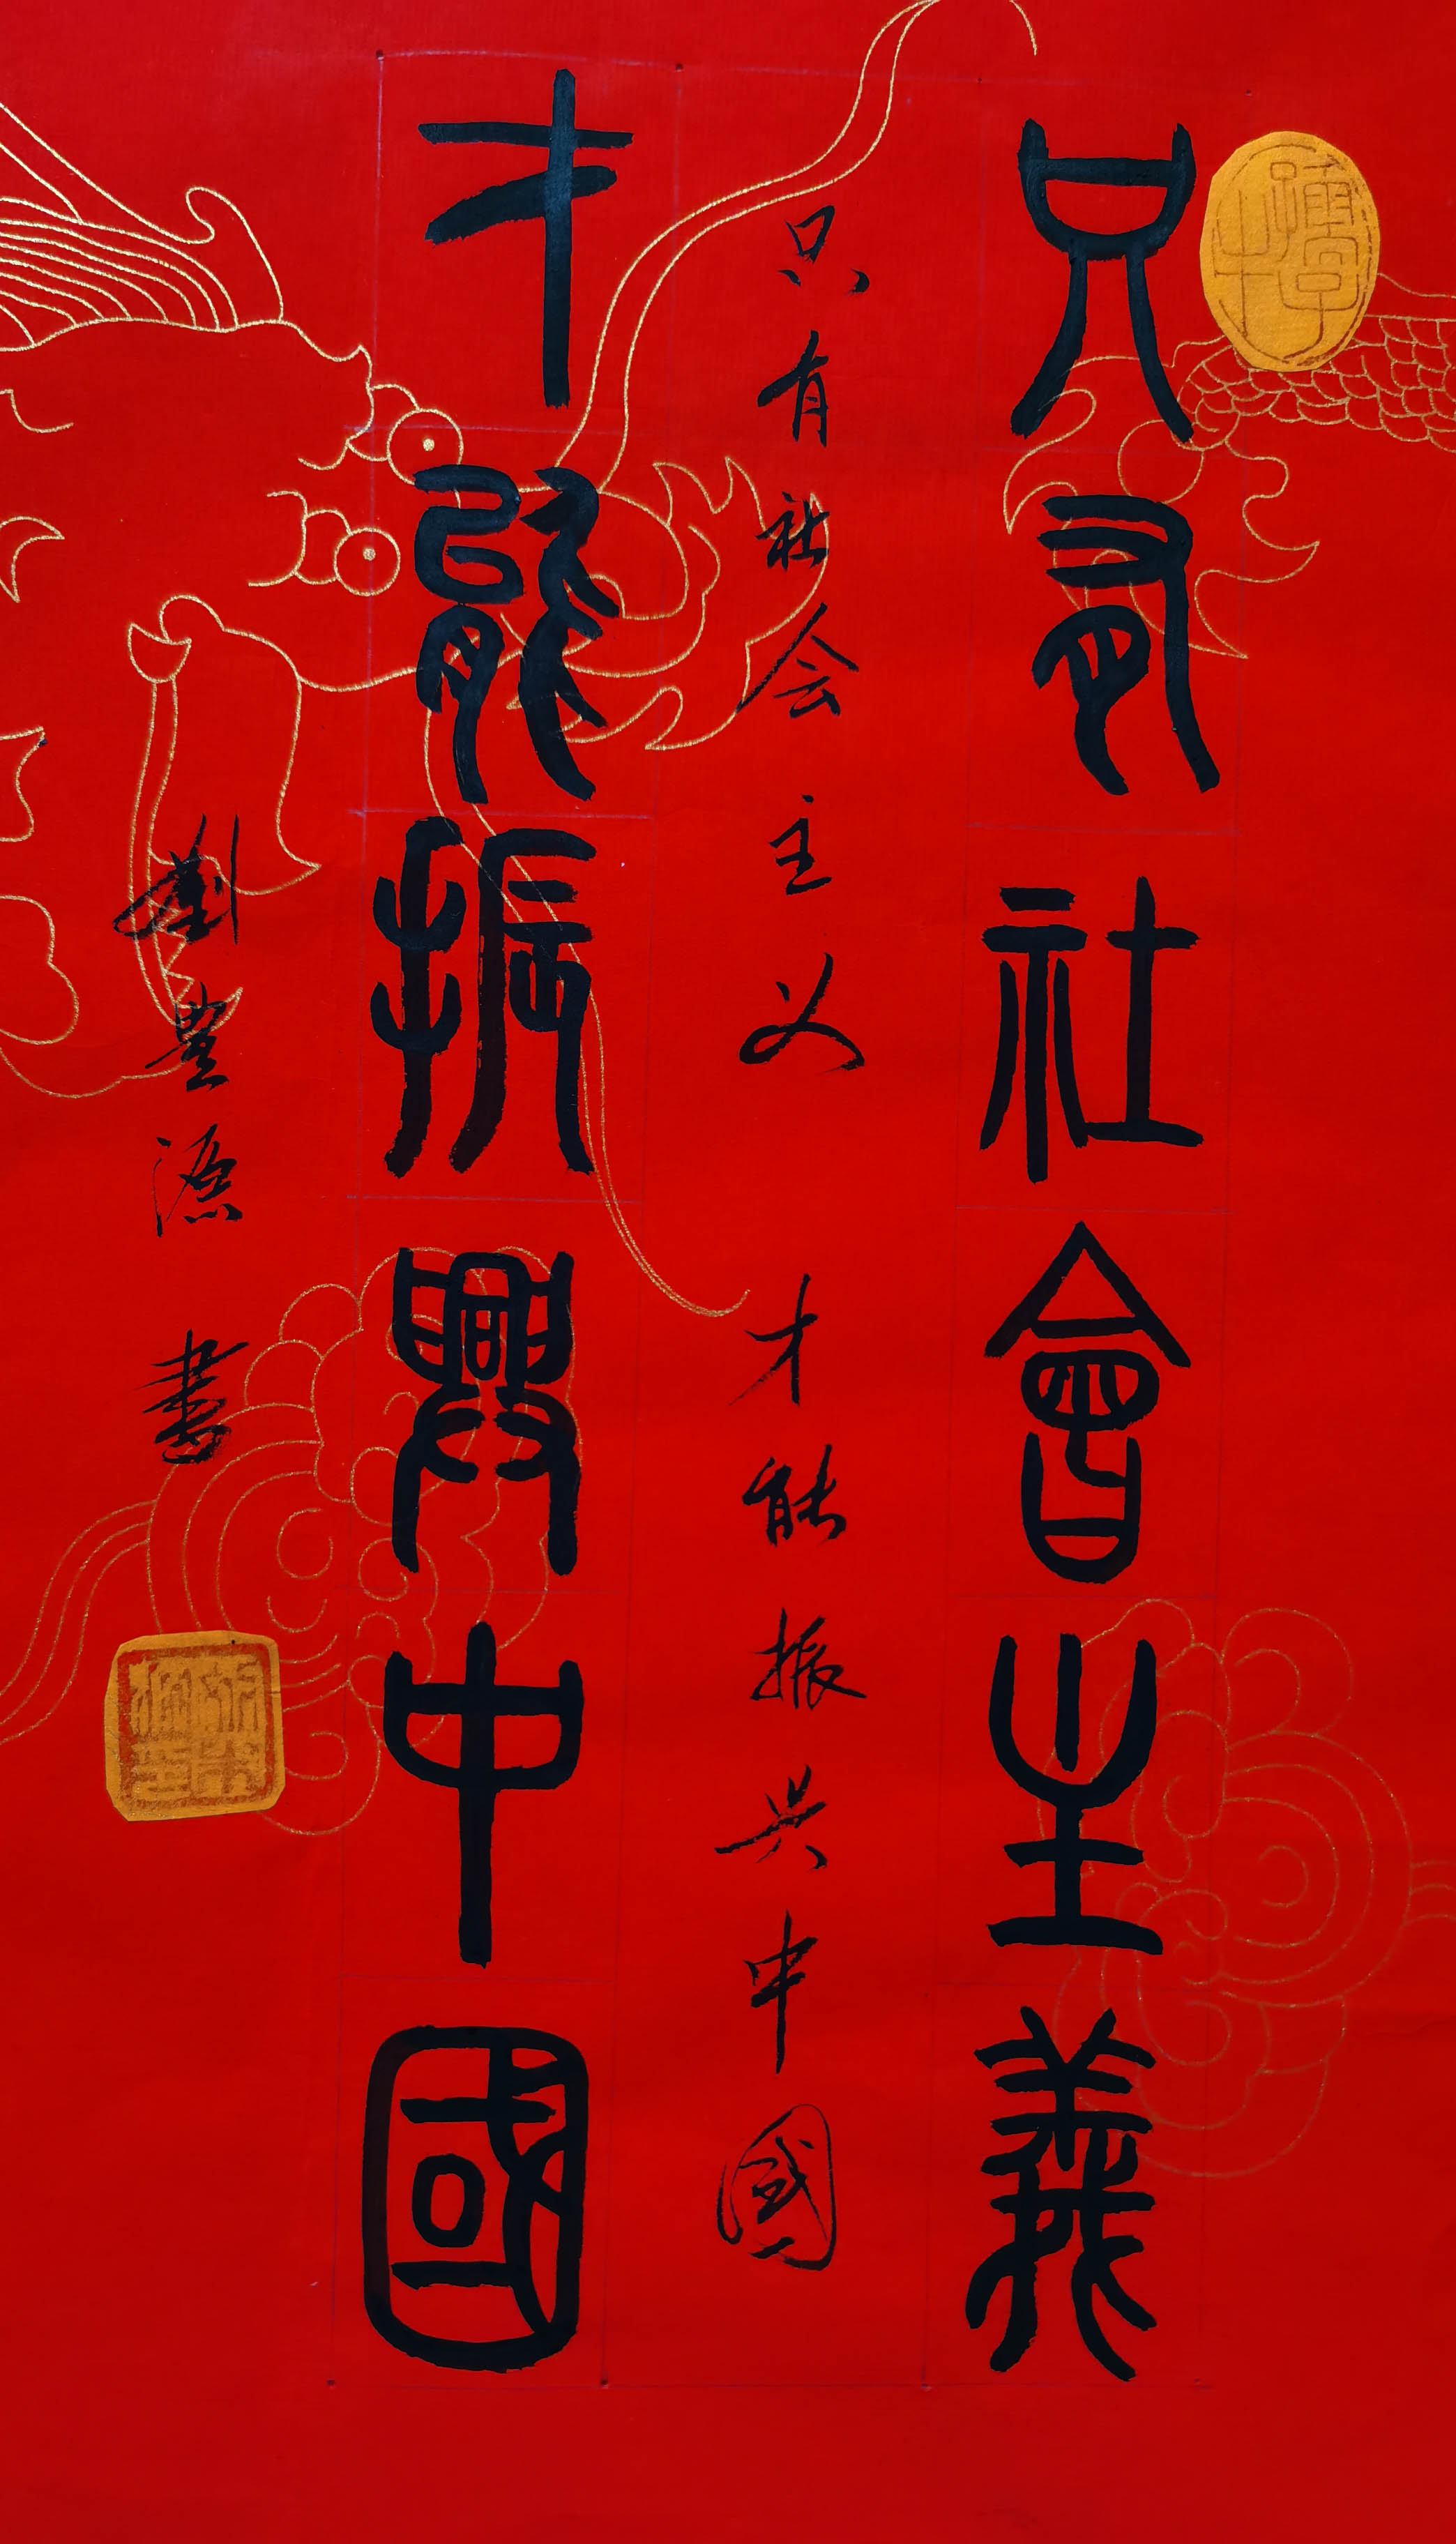 只有社會主義
只有社会主义 才能振兴中國
才能振興中國
劉豊源 書